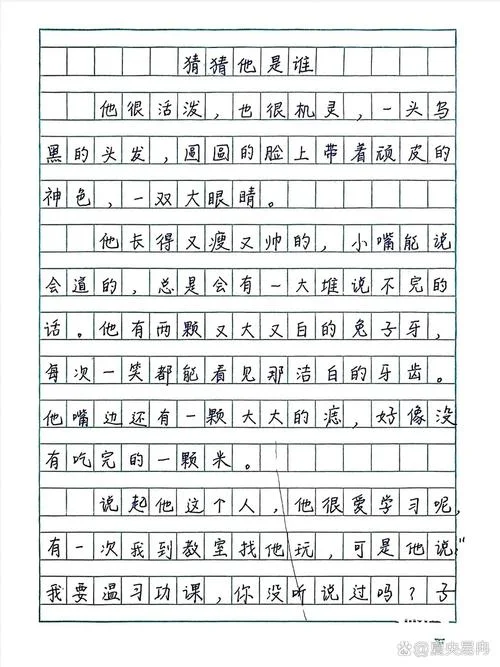 猜猜他是谁
他很活泼，也很机灵，一头乌
黑的头发，圆圆的脸上带着顽皮的
神色，一双大眼睛。
他长得又瘦又帅的，小嘴能说
会道的，总是会有一大堆说不完的
话。他有两颗又大又白的兔子牙，
每次一笑都能看见那洁白的牙齿。
他嘴边还有一颗大大的痣，好像没
有吃完的一颗米。
说起他这个人，他很爱学习呢，
有一次我到教室找他玩，可是他说：“
我要温习功课，你没听说过吗？子